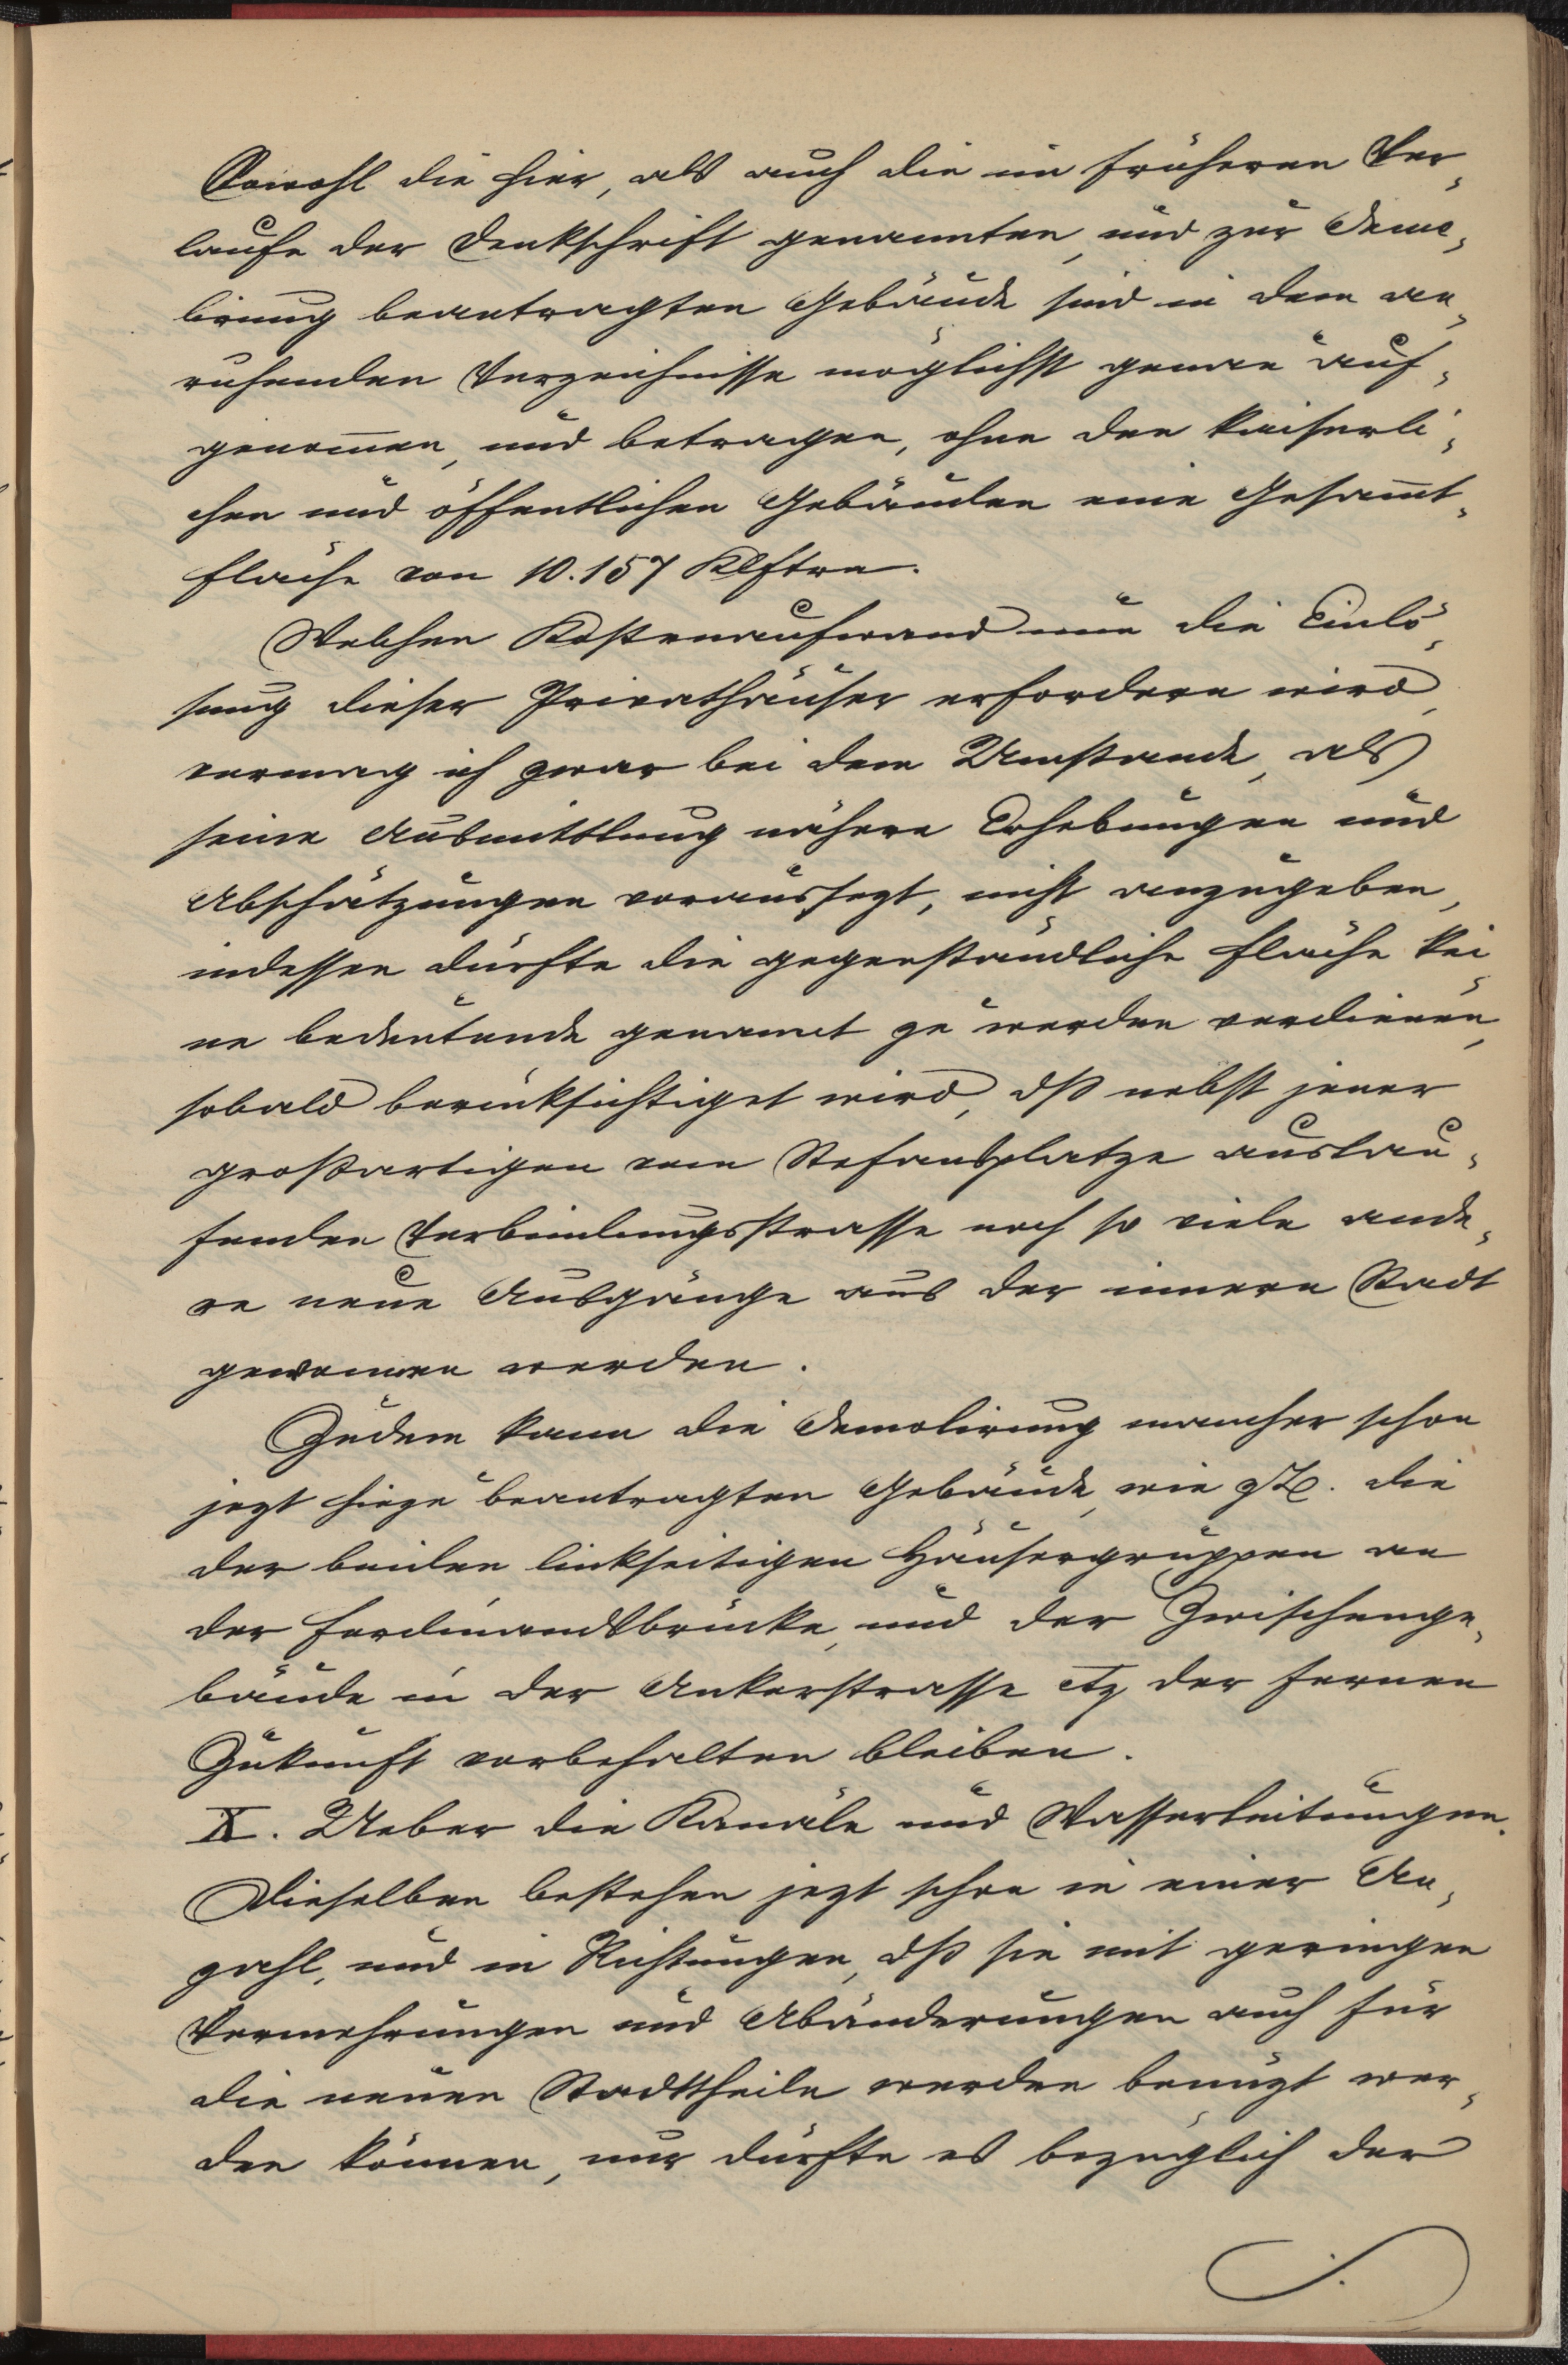 Sowohl die hier, als auch die im früheren Ver-
laufe der Denkschrift genannten, und zur Demo-
lirung beantragten Gebäude sind in dem an-
ruhenden Verzeichnisse möglichst genau auf-
genom̅en, und betragen, ohne den kaiserli-
chen und öffentlichen Gebäuden eine Gesam̅t-
fläche von 10.157 Klftrn.
Welchen Kostenaufwand nun die Einlö-
sung dieser Privathäuser erfordern wird,
vermag ich zwar bei dem Umstande, als
seine Ausmittlung nähere Erhebungen und
Abschätzungen voraussezt, nicht anzugeben,
indessen dürfte die gegenständliche Fläche kei-
ne bedeutende genannt zu werden verdienen,
sobald berücksichtiget wird, dß nebst jener
großartigen vom Stefansplatze auslau-
fenden Verbindungsstrasse noch so viele ande-
re neue Ausgänge aus der innern Stadt
gewonnen werden.
Zudem kann die Demolirung mancher schon
jezt hiezu beantragten Gebäude, wie z.B. die
der beiden linkseitigen Häusergruppen an
der Ferdinandsbrücke, und der Zwischenge-
bäude in der Ankerstrasse etz der fernen
Zukunft vorbehalten bleiben.
X. Ueber die Kanäle und Wasserleitungen.
Dieselben bestehen jezt schon in einer An-
zahl, und in Richtungen, dß sie mit geringen
Vermehrungen und Abänderungen auch für
die neuen Stadttheile werden benüzt wer-
den können, nur dürfte es bezüglich der
./.